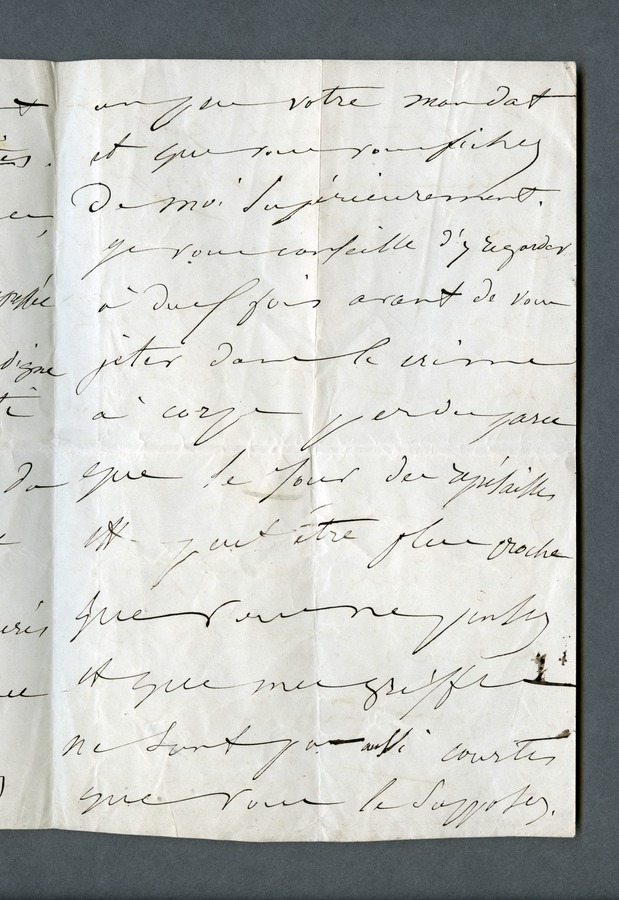 que votre mandat
et que vous vous fichez
De moi supérieurement.
je vous conseille d'y regarder
à deux fois avant de vous
jeter dans le crime
à corps perdu parce
que le jour des représailles
est peut être plus proche
que vous ne pensez
et que mes griffes
ne sont pas aussi courtes
que vous le supposez.